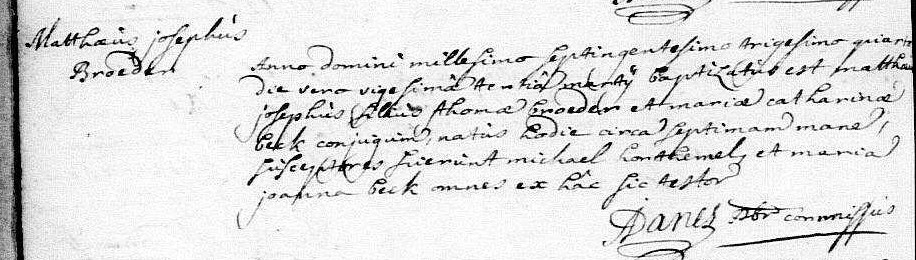 Matthæus josephus
Broeder
Anno domini millesimo septingentesimo trigesimo quarto
die vero vigesimâ tertiâ martij baptizatus est matthæus
josephus filius thomæ broeder et mariæ catharinæ
beck conjugum, natus hodie circa septimam mane,
susceptores fuerunt michael honthemel et maria
joanna beck omnes ex hâc sic testor
commissus